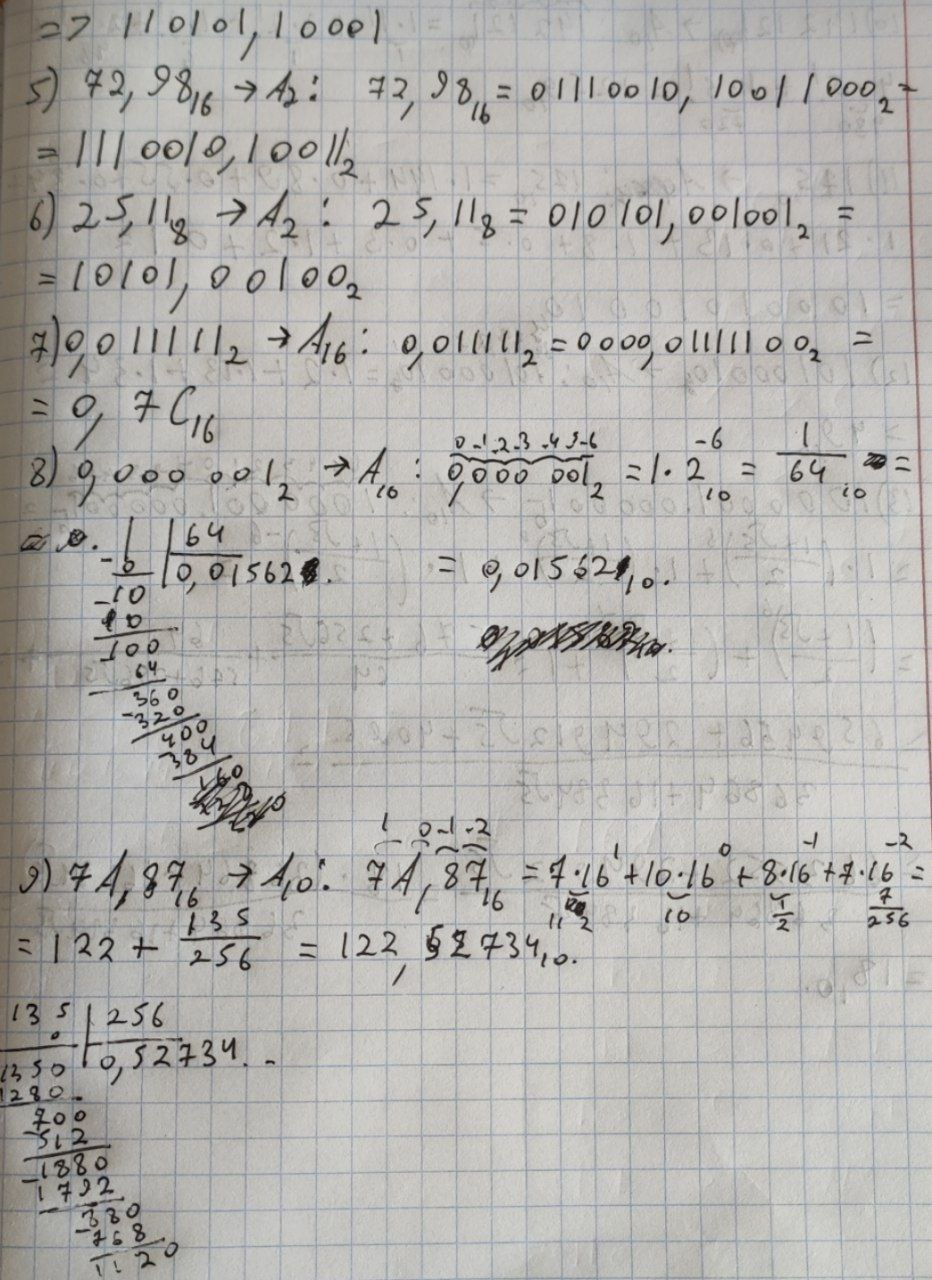 => 110101,10001
5) 72,98₁₆ → A₂: 72,98₁₆ = 01110010, 10011000₂ =
= 1110010,10011₂
6) 25,11₈ → A₂: 25,11₈ = 010101,001001₂ =
= 10101, 00100₂
7) 0,011111₂ → A₁₆: 0,011111₂ = 0000,01111100₂ =
= 0, 7C₁₆
0 -1 -2 -3 -4 -5 -6
8) 0,000 001₂ → A₁₀: 0,000 001₂ = 1·2⁻⁶₁₀ = 1/64₁₀ =
1 | 64
-0 | 0,01562 = 0,01562₁₀.
-10
0
-100
64
360
-320
400
384
160
1 0 -1 -2
9) 7A,87₁₆ → A₁₀: 7A,87₁₆ = 7·16¹ + 10·16⁰ + 8·16⁻¹ + 7·16⁻² =
112 10 1/2 7/256
= 122 + 135/256 = 122,52734₁₀.
135 | 256
0 | 0,52734..
1350
1280
700
512
-1880
1792
880
-768
1120